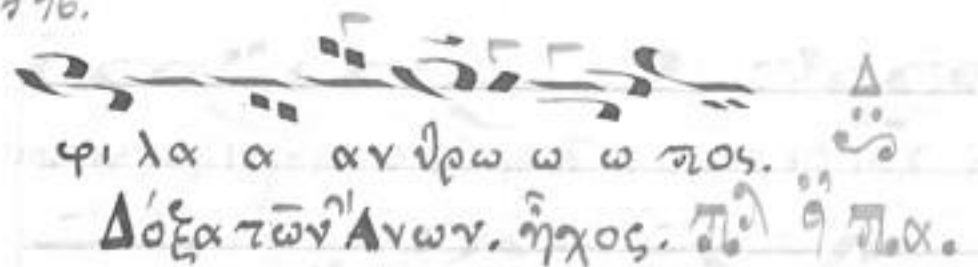 φι λα α αν θρω ω ω πος. Δ
Δόξα τῶν Ἄνων. ἦχος. πλ ᾗ πα.